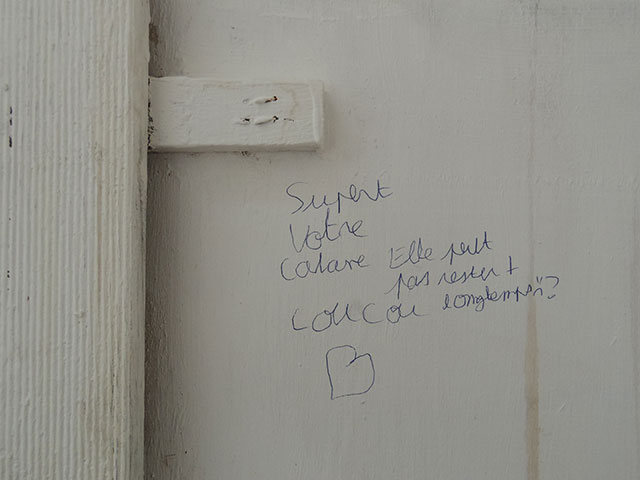 Supert
Votre
cabane
coucou
Elle peut
pas rester +
longtemps ?